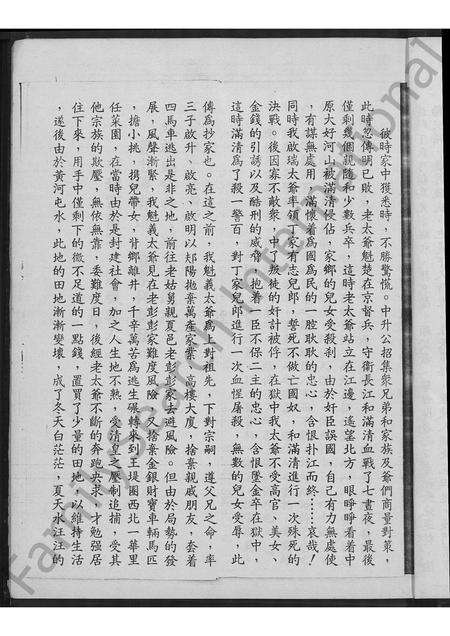 彼時家中獲悉時，不勝驚慌。中升公招集眾兄弟和家族及爺們商量對策，
此時忽傳明已敗，老太爺魁楚在京督兵，守衛長江和滿清血戰了七晝夜，最後
僅剩幾個親隨和少數兵卒，這時老太爺站立在江邊，遙望北方，眼睁睁看着中
原大好河山被滿清侵佔，家鄉的兒女受殺剎，由於奸臣誤國，自己有力無處使
，有謀無處用，滿懷着爲國爲民的一腔耿耿的忠心，含恨扑江而終……哀哉！
同時我啟瑞太爺率領一家有志兒郎，誓死不做亡國奴，和滿清進行一次殊死的
決戰。後因寡不敵眾，中了叛徒的奸計被俘，在獄中我太爺不受高官、美女、
金錢的引誘以及酷刑的威脅，抱着一臣不保二主的忠心，含恨墜金卒在獄中，
這時滿清爲了殺一警百，對丁家兒郎進行一次血腥屠殺，無數的兒女受辱，此
傳爲抄家也。在這之前，我魁義太爺爲了對祖先，下對宗嗣，遵父兄之命，率
三子啟升、啟亮、啟明以郟陽拋棄萬產家業，高樓大廈，捨棄親戚朋友，套着
四馬車逃出是非之地，前往老姑舅親夏邑老彭彭家去避風險。但由於局勢的發
展，風聲漸緊，我魁義太爺見在老彭彭家難度風險，又捨棄金銀財寶車輛馬匹
，擔小挑，携兒帶女，背鄉離井，千辛萬苦爲逃生碾轉來到王堤圈西北一華里
任菜園，在當時由於是封建社會，加之人生地不熟，受清皇之壓制追捕，受其
他宗族的欺壓，無依無靠，委難度日，後經老太爺不斷的奔跑央求，才勉强居
住下來，用手中僅剩下的微不足道的一點錢，置買了少量的田地，以維持生活
，遂後由於黃河屯水，此地的田地漸漸變壞，成了冬天白茫茫，夏天水汪汪的
FamilySearch International